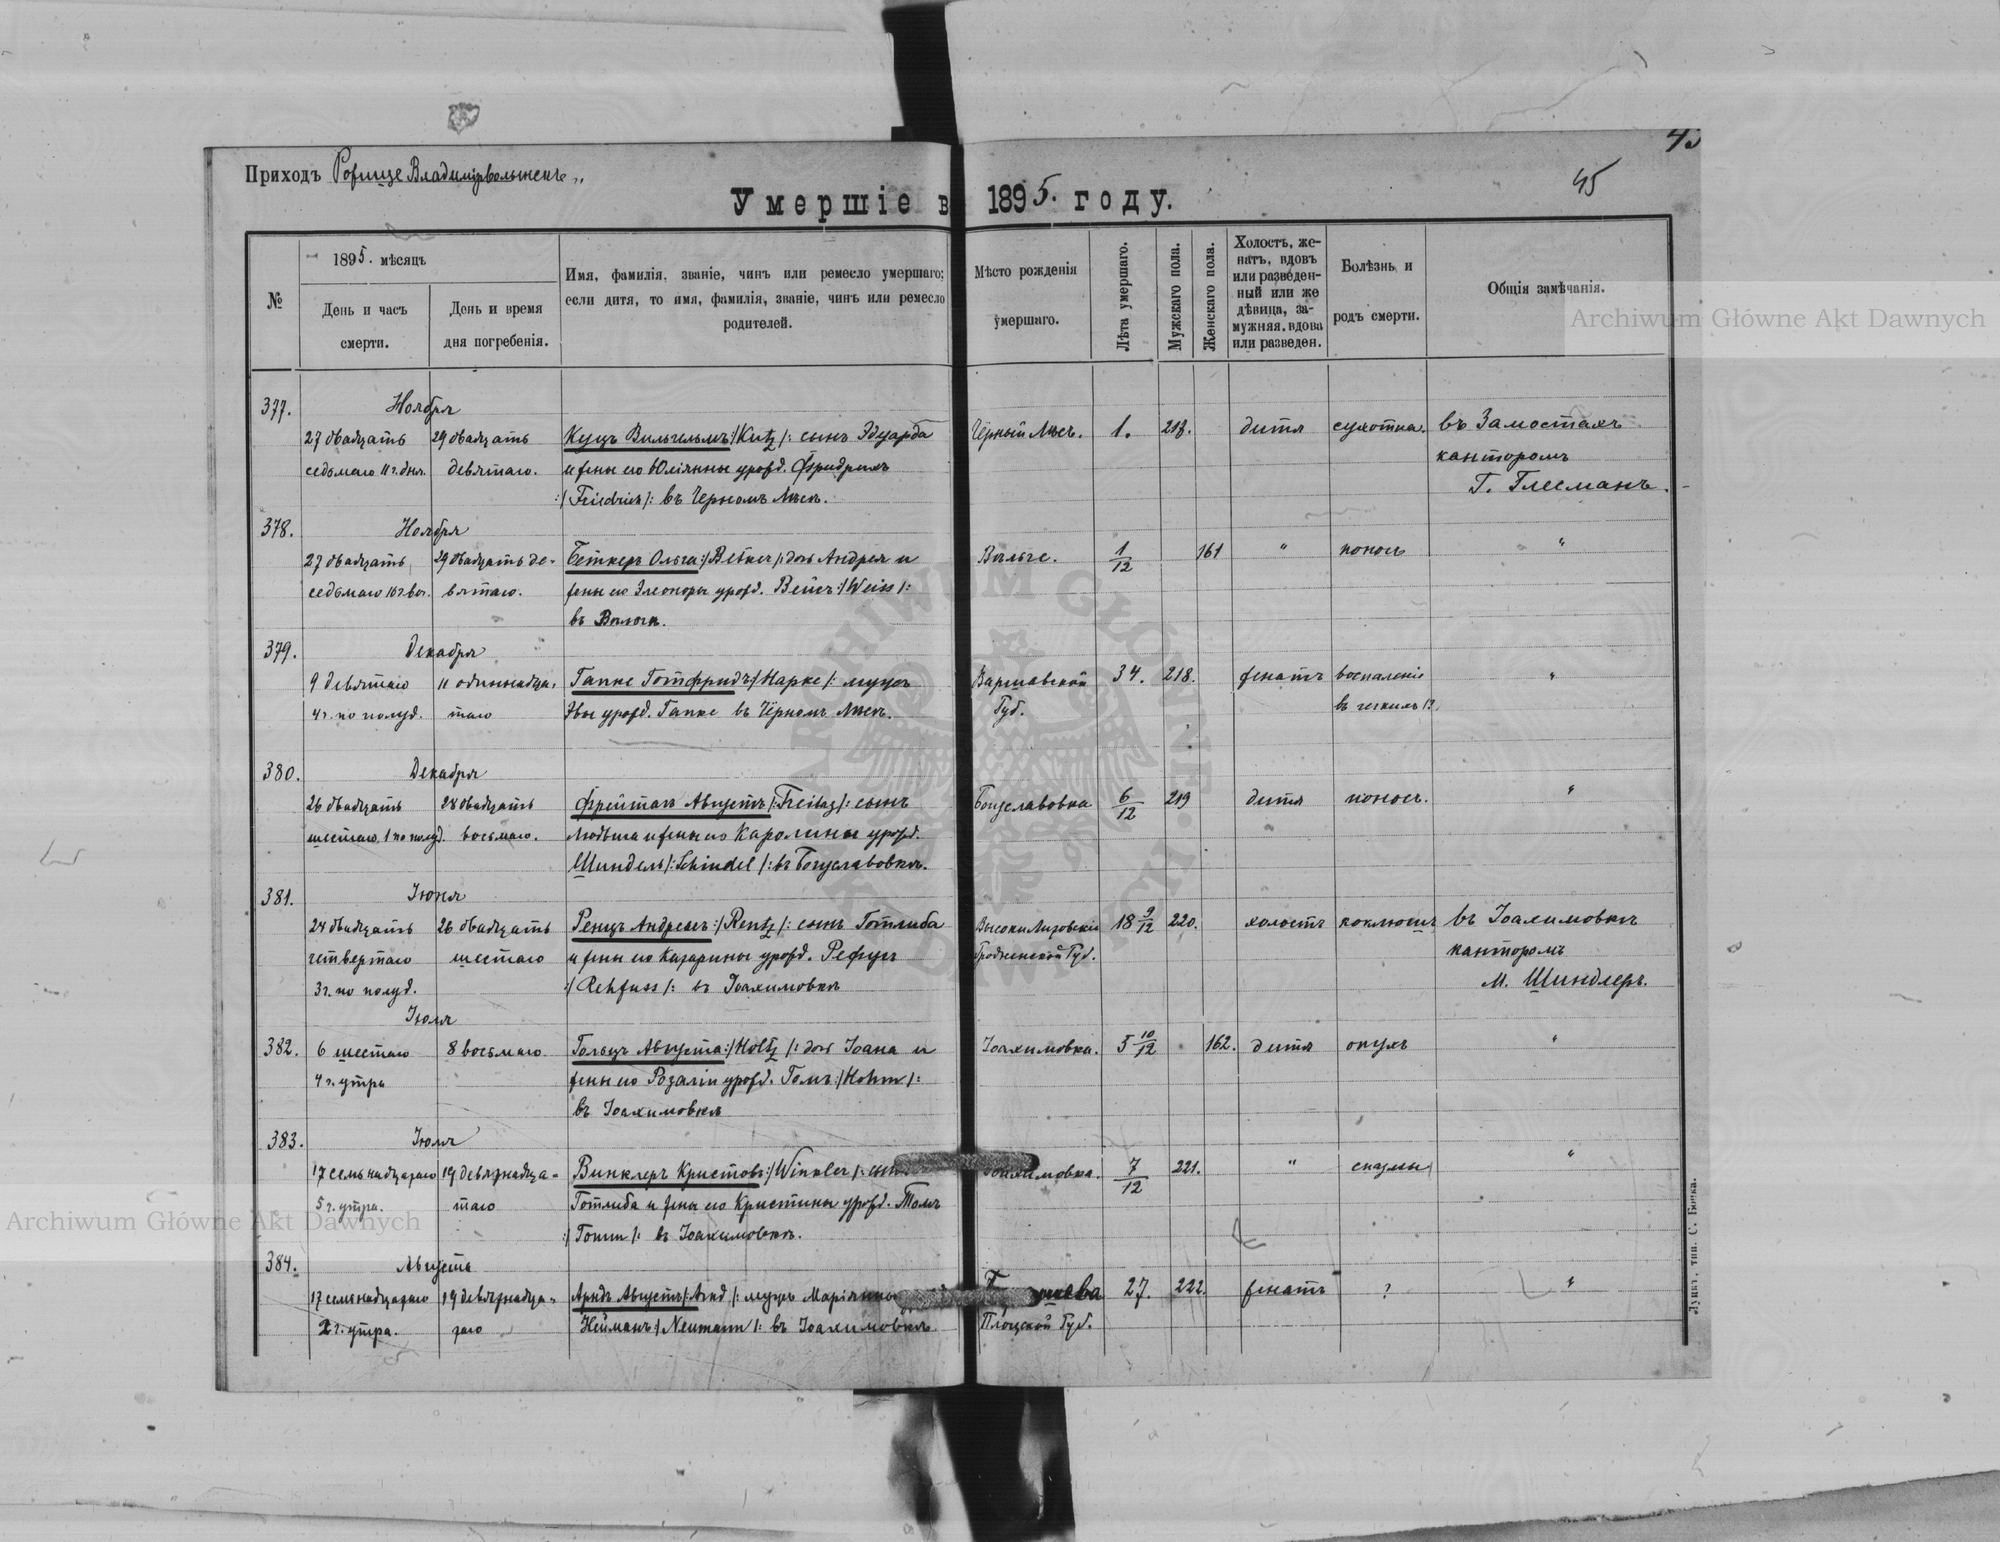 45
Приходъ Рожище Владимірволынскъ
45
Умершіе въ 1895. году.
№
1895. мѣсяцъ
День и часъ смерти.
День и время дня погребенія.
Имя, фамилія, званіе, чинъ или ремесло умершаго;
если дитя, то имя, фамилія, званіе, чинъ или ремесло
родителей.
Мѣсто рожденія
умершаго.
Лѣта умершаго.
Мужскаго пола.
Женскаго пола.
Холостъ, же-
натъ, вдовъ
или разведен-
ный или же
дѣвица, за-
мужняя, вдова
или разведен.
Болѣзнь и
родъ смерти.
Общія замѣчанія.
Archiwum Główne Akt Dawnych
377. Ноября
27 двадцать 29 двадцать Куцъ Вильгельмъ :/Kutz/: сынъ Эдуарда Чёрный Лѣсъ. 1. 217. дитя сухотка. въ Замостахъ
седьмаго 11 ч. дня. девятаго. и жены его Юліянны урожд. Фридрихъ канторомъ
:/Friedrich/: въ Черномъ Лѣсѣ. Г. Глесманъ.
378. Ноября
27 двадцать 29 двадцать де- Беткеръ Ольга :/Betker/: дочь Андрея и 1/12 161 " поносъ "
седьмаго 10 ч. веч. вятаго. жены его Элеоноры урожд. Вейсъ :/Weiss/:
въ
379. Декабря
9 девятаго 11 одиннадца- Гапке Готфридъ :/Hapke/: мужъ Варшавской 34. 218. женатъ воспаленіе "
4 ч. по полуд. таго Эвы урожд. Гапке въ Чёрномъ Лѣсѣ. Губ. въ
380. Декабря
26 двадцать 28 двадцать Фрейтагъ Августъ /:Freitag/: сынъ Богуславовка 6/12 219 дитя поносъ. "
шестаго 1 по полуд. восьмаго. Людвига и жены его Каролины урожд.
Шиндель /:Schindel/: въ Богуславовкѣ.
381. Іюня
24 двадцать 26 двадцать Ренцъ Андреасъ :/Rentz/: сынъ Готлиба 18 9/12 220. холостъ коклюшъ въ Іоахимовкѣ
четвертаго шестаго и жены его Катарины урожд. Рефусъ Гродненской Губ. канторомъ
3 ч. по полуд. :/Rehfuss/: въ Іоахимовкѣ М. Шиндлеръ.
Іюля
382. 6 шестаго 8 восьмаго Гольцъ Августа :/Holtz/: дочь Іоана и Іоахимовка. 5 10/12 162. дитя опухъ "
4 ч. утра жены его Розаліи урожд. Гомъ :/Hohm/:
въ Іоахимовкѣ
383. Іюля
17 семьнадцатаго 19 девятнадца- Винклеръ Кристовъ :/Winkler/: сынъ Іоахимовка. 7/12 221. " спазмы "
5 ч. утра. таго Готлиба и жены его Кристины урожд. Томъ
:/Tomm/: въ Іоахимовкѣ.
384. Августъ
17 семьнадцатаго 19 девятнадца- Арндъ Августъ /:Arnd/: мужъ Маріянны 27. 222. женатъ ? "
2 ч. утра. таго Нейманъ :/Neumann/: въ Іоахимовкѣ Плоцкой Губ.
Луцкъ, тип. С. Бонка.
Archiwum Główne Akt Dawnych
ARCHIWUM GŁÓWNE AKT DAWNYCH